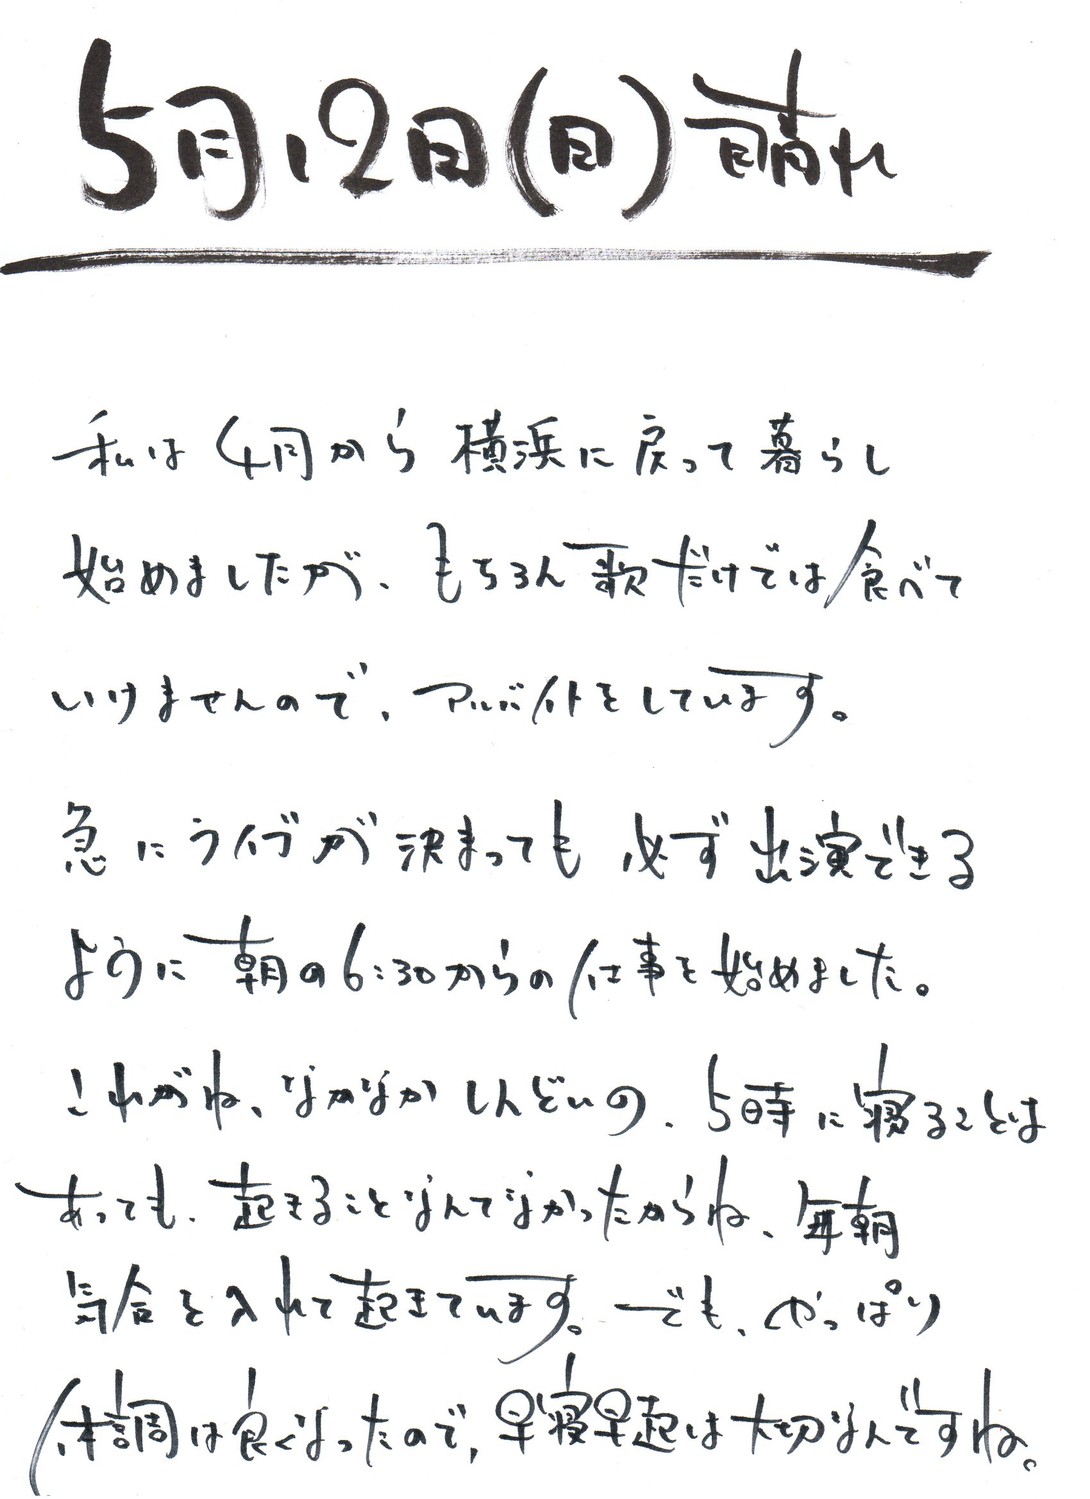 5月12日(日)晴れ
私は4月から横浜に戻って暮らし
始めましたが、もちろん歌だけでは食べて
いけませんので、アルバイトをしています。
急にライブが決まっても必ず出演できる
ように朝の6:30からの仕事を始めました。
これがね、なかなかしんどいの、5時に寝ることは
あっても、起きることなんてなかったからね、毎朝
気合を入れて起きています。でも、やっぱり
体調は良くなったので、早寝早起は大切なんですね。